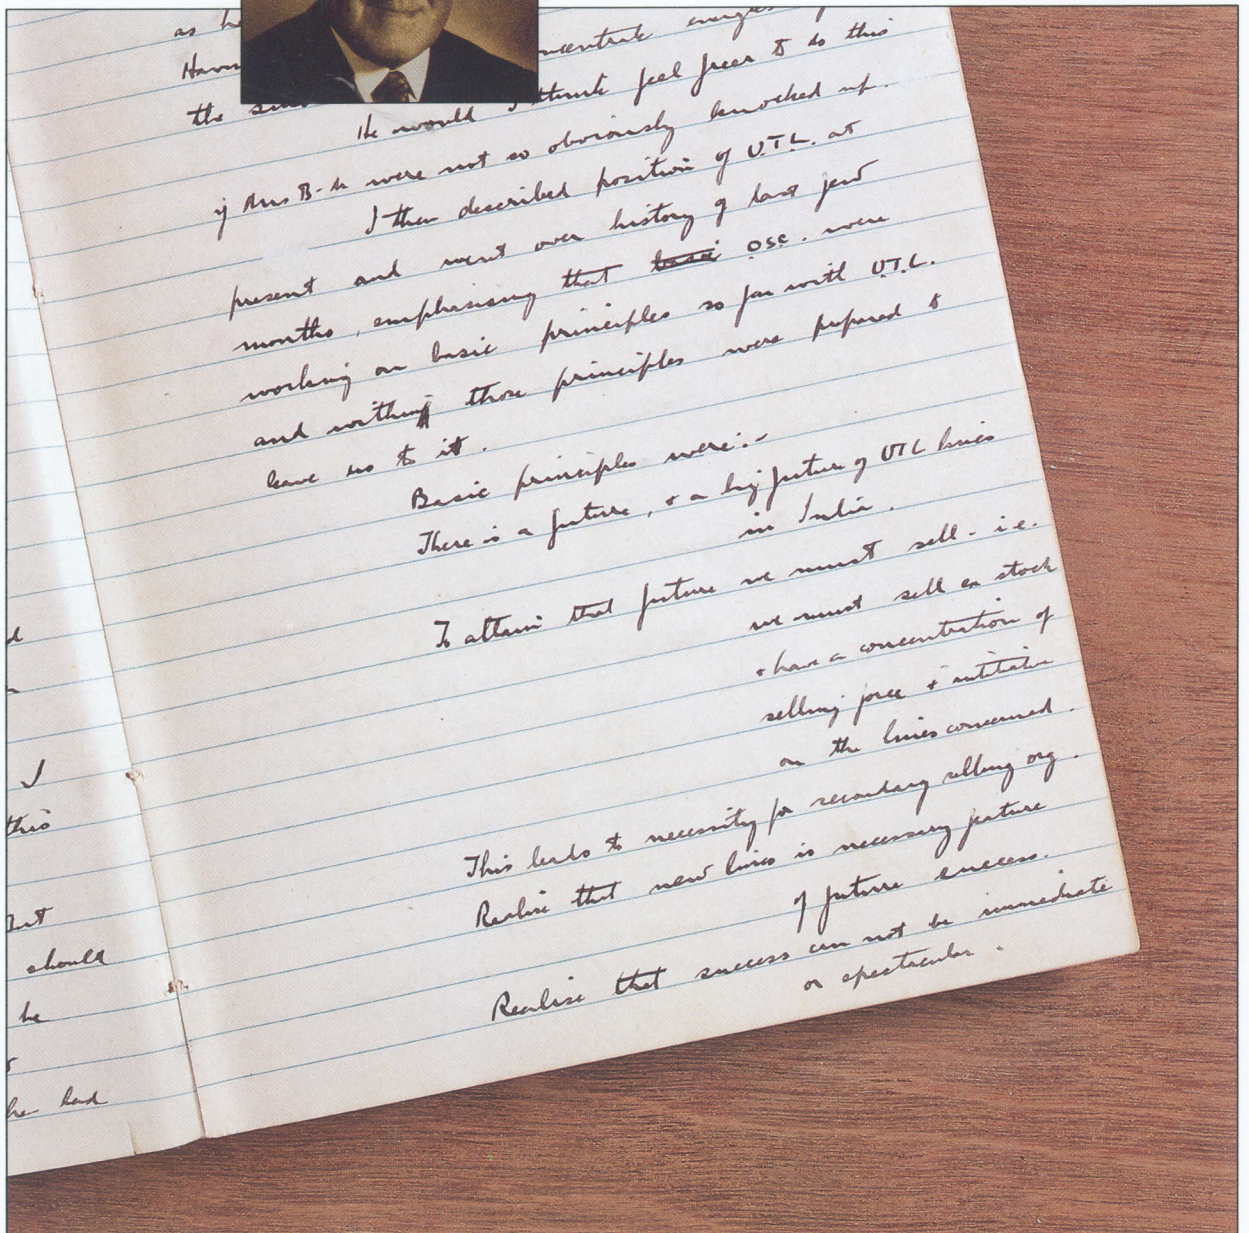 as he
the
He would I think feel freer to do this
if Mrs B-h were not so obviously knocked up.
I then described position of U.T.L. at
present and went over history of last few
months, emphasising that basic OSC. were
working on basic principles so far with U.T.L.
and within those principles were prepared to
leave us to it.
Basic principles were:-
There is a future, & a big future of UTL lines
in India.
To attain that future we must sell - i.e.
we must sell ex stock
& have a concentration of
selling force & initiative
on the lines concerned.
This leads to necessity for secondary selling org.
Realise that new lines is necessary feature
of future success.
Realise that success can not be immediate
or spectacular.
d
I
this
but
should
he
he had